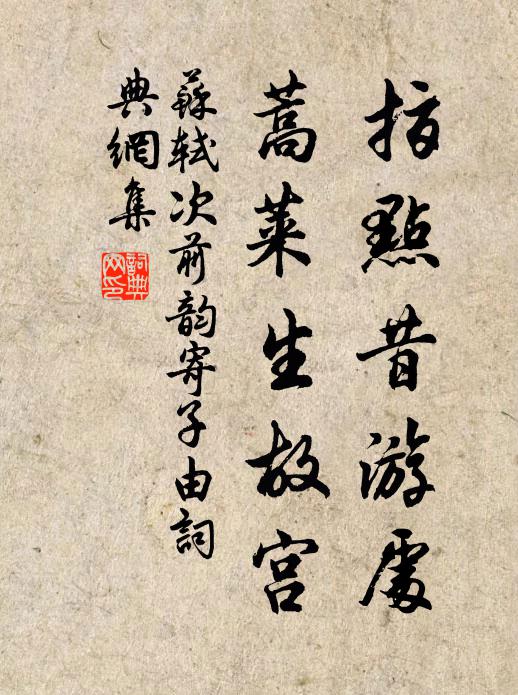 指點昔游處
蒿萊生故宫
蘇軾次前韵寄子由詞
典網集
詞典
网印